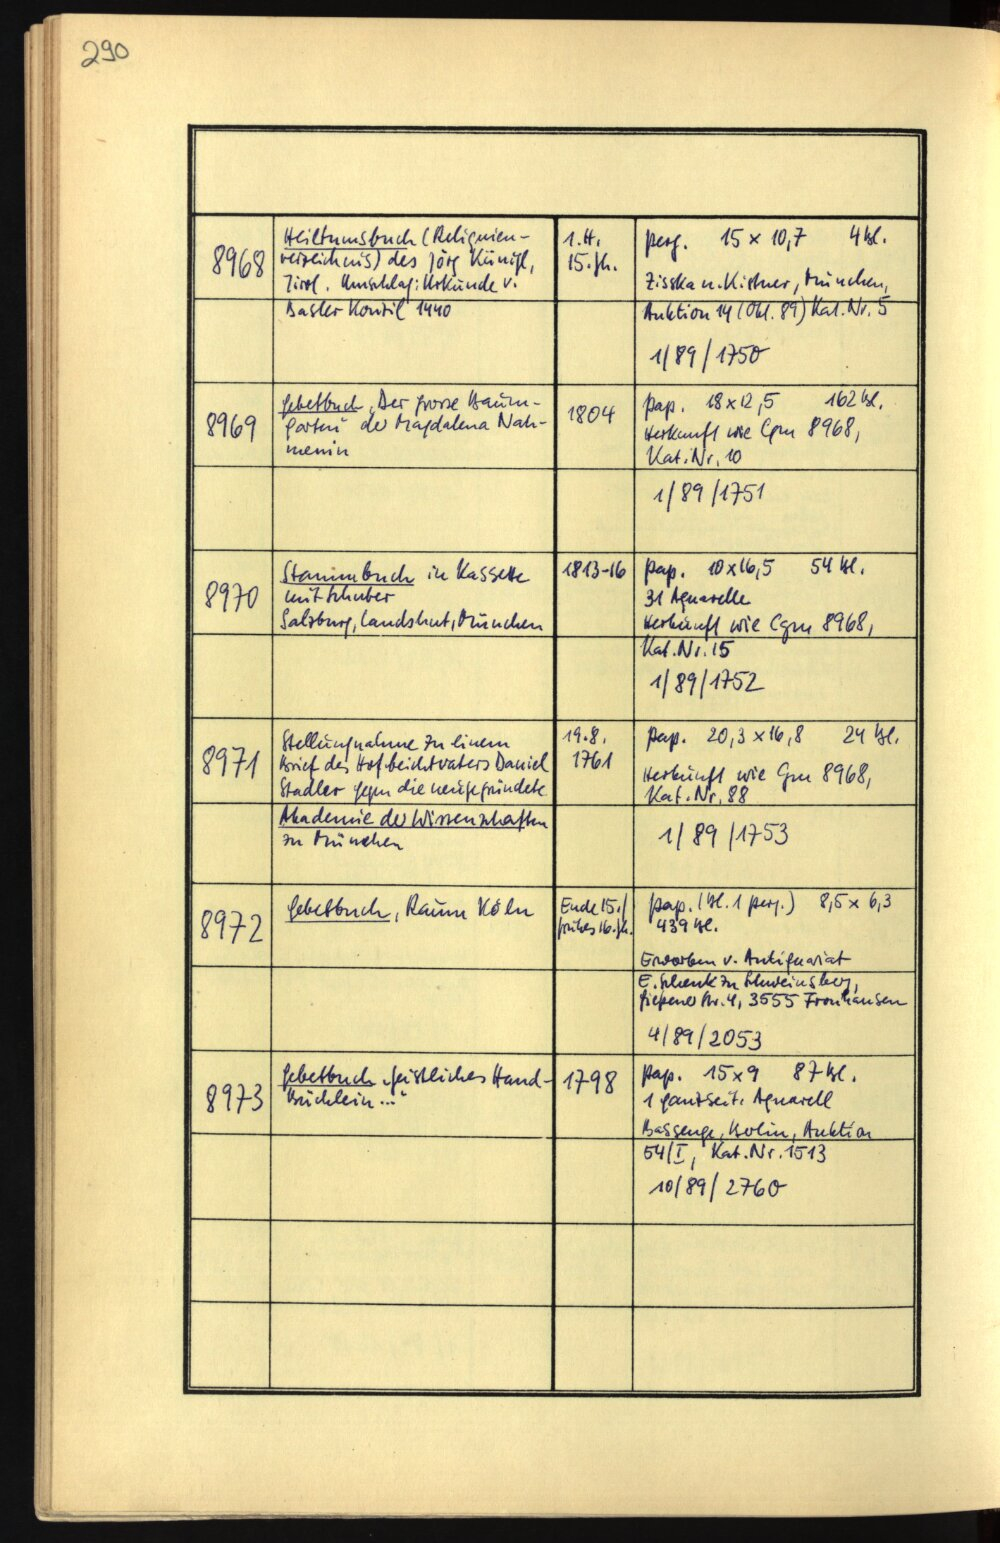 290
8968
Heiltumsbuch (Reliquien-
verzeichnis) des Jörg Künigl,
Tirol. Umschlag: Urkunde v.
Basler Konzil 1440
1. H.
15. Jh.
Perg. 15 x 10,7 4 Bl.
Zisska u. Kistner, München,
Auktion 14 (Okt. 89) Kat. Nr. 5
1/89/1750
8969
Gebetbuch „Der grosse Baum-
garten" der Magdalena Nah-
menin
1804
Pap. 18 x 12,5 162 Bl.
Herkunft wie Cgm 8968,
Kat. Nr. 10
1/89/1751
8970
Stammbuch in Kassette
mit Schuber
Salzburg, Landshut, München
1813-16
Pap. 10 x 16,5 54 Bl.
31 Aquarelle
Herkunft wie Cgm 8968,
Kat. Nr. 15
1/89/1752
8971
Stellungnahme zu einem
Brief des Hofbeichtvaters Daniel
Stadler gegen die neugegründete
Akademie der Wissenschaften
zu München
19.8.
1761
Pap. 20,3 x 16,8 24 Bl.
Herkunft wie Cgm 8968,
Kat. Nr. 88
1/89/1753
8972
Gebetbuch, Raum Köln
Ende 15./
frühes 16. Jh.
Pap. (Bl. 1 Perg.) 8,5 x 6,3
439 Bl.
Erworben v. Antiquariat
E. Schenk zu Schweinsberg,
Gießener Str. 4, 3555 Fronhausen
4/89/2053
8973
Gebetbuch „Geistliches Hand-
Büchlein..."
1798
Pap. 15 x 9 87 Bl.
1 ganzseit. Aquarell
Bassenge, Berlin, Auktion
54/I, Kat. Nr. 1513
10/89/2760